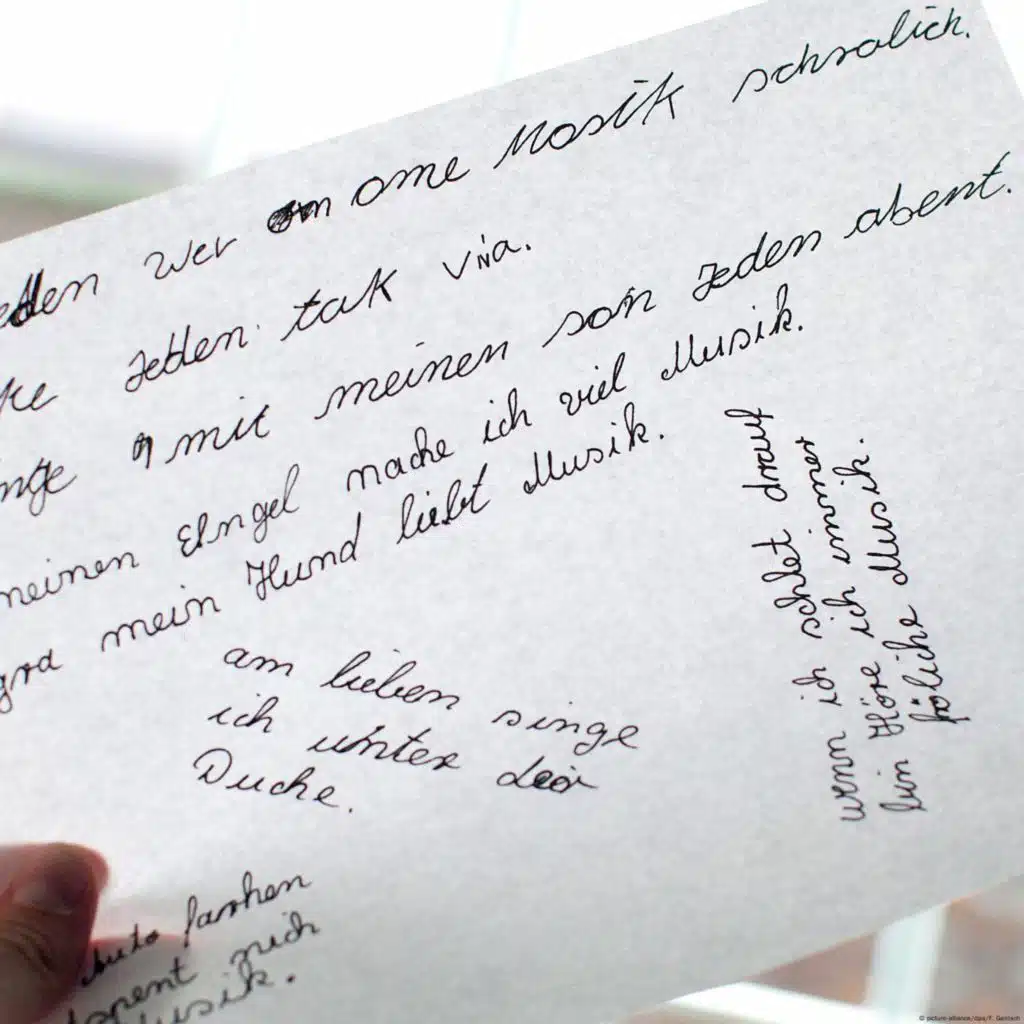 wer om ome Mosik schralich.
Jeden tak via.
mit meinen son Jeden abent.
meinen Elngel mache ich viel Musik.
mein Hund liebt Musik.
am lieben singe
ich unter der
Duche.
wenn ich schlet drauf
bin Höre ich immer
föliche Musik.
auto farhen
mich
Musik.
© picture-alliance/dpa/F. Gentsch